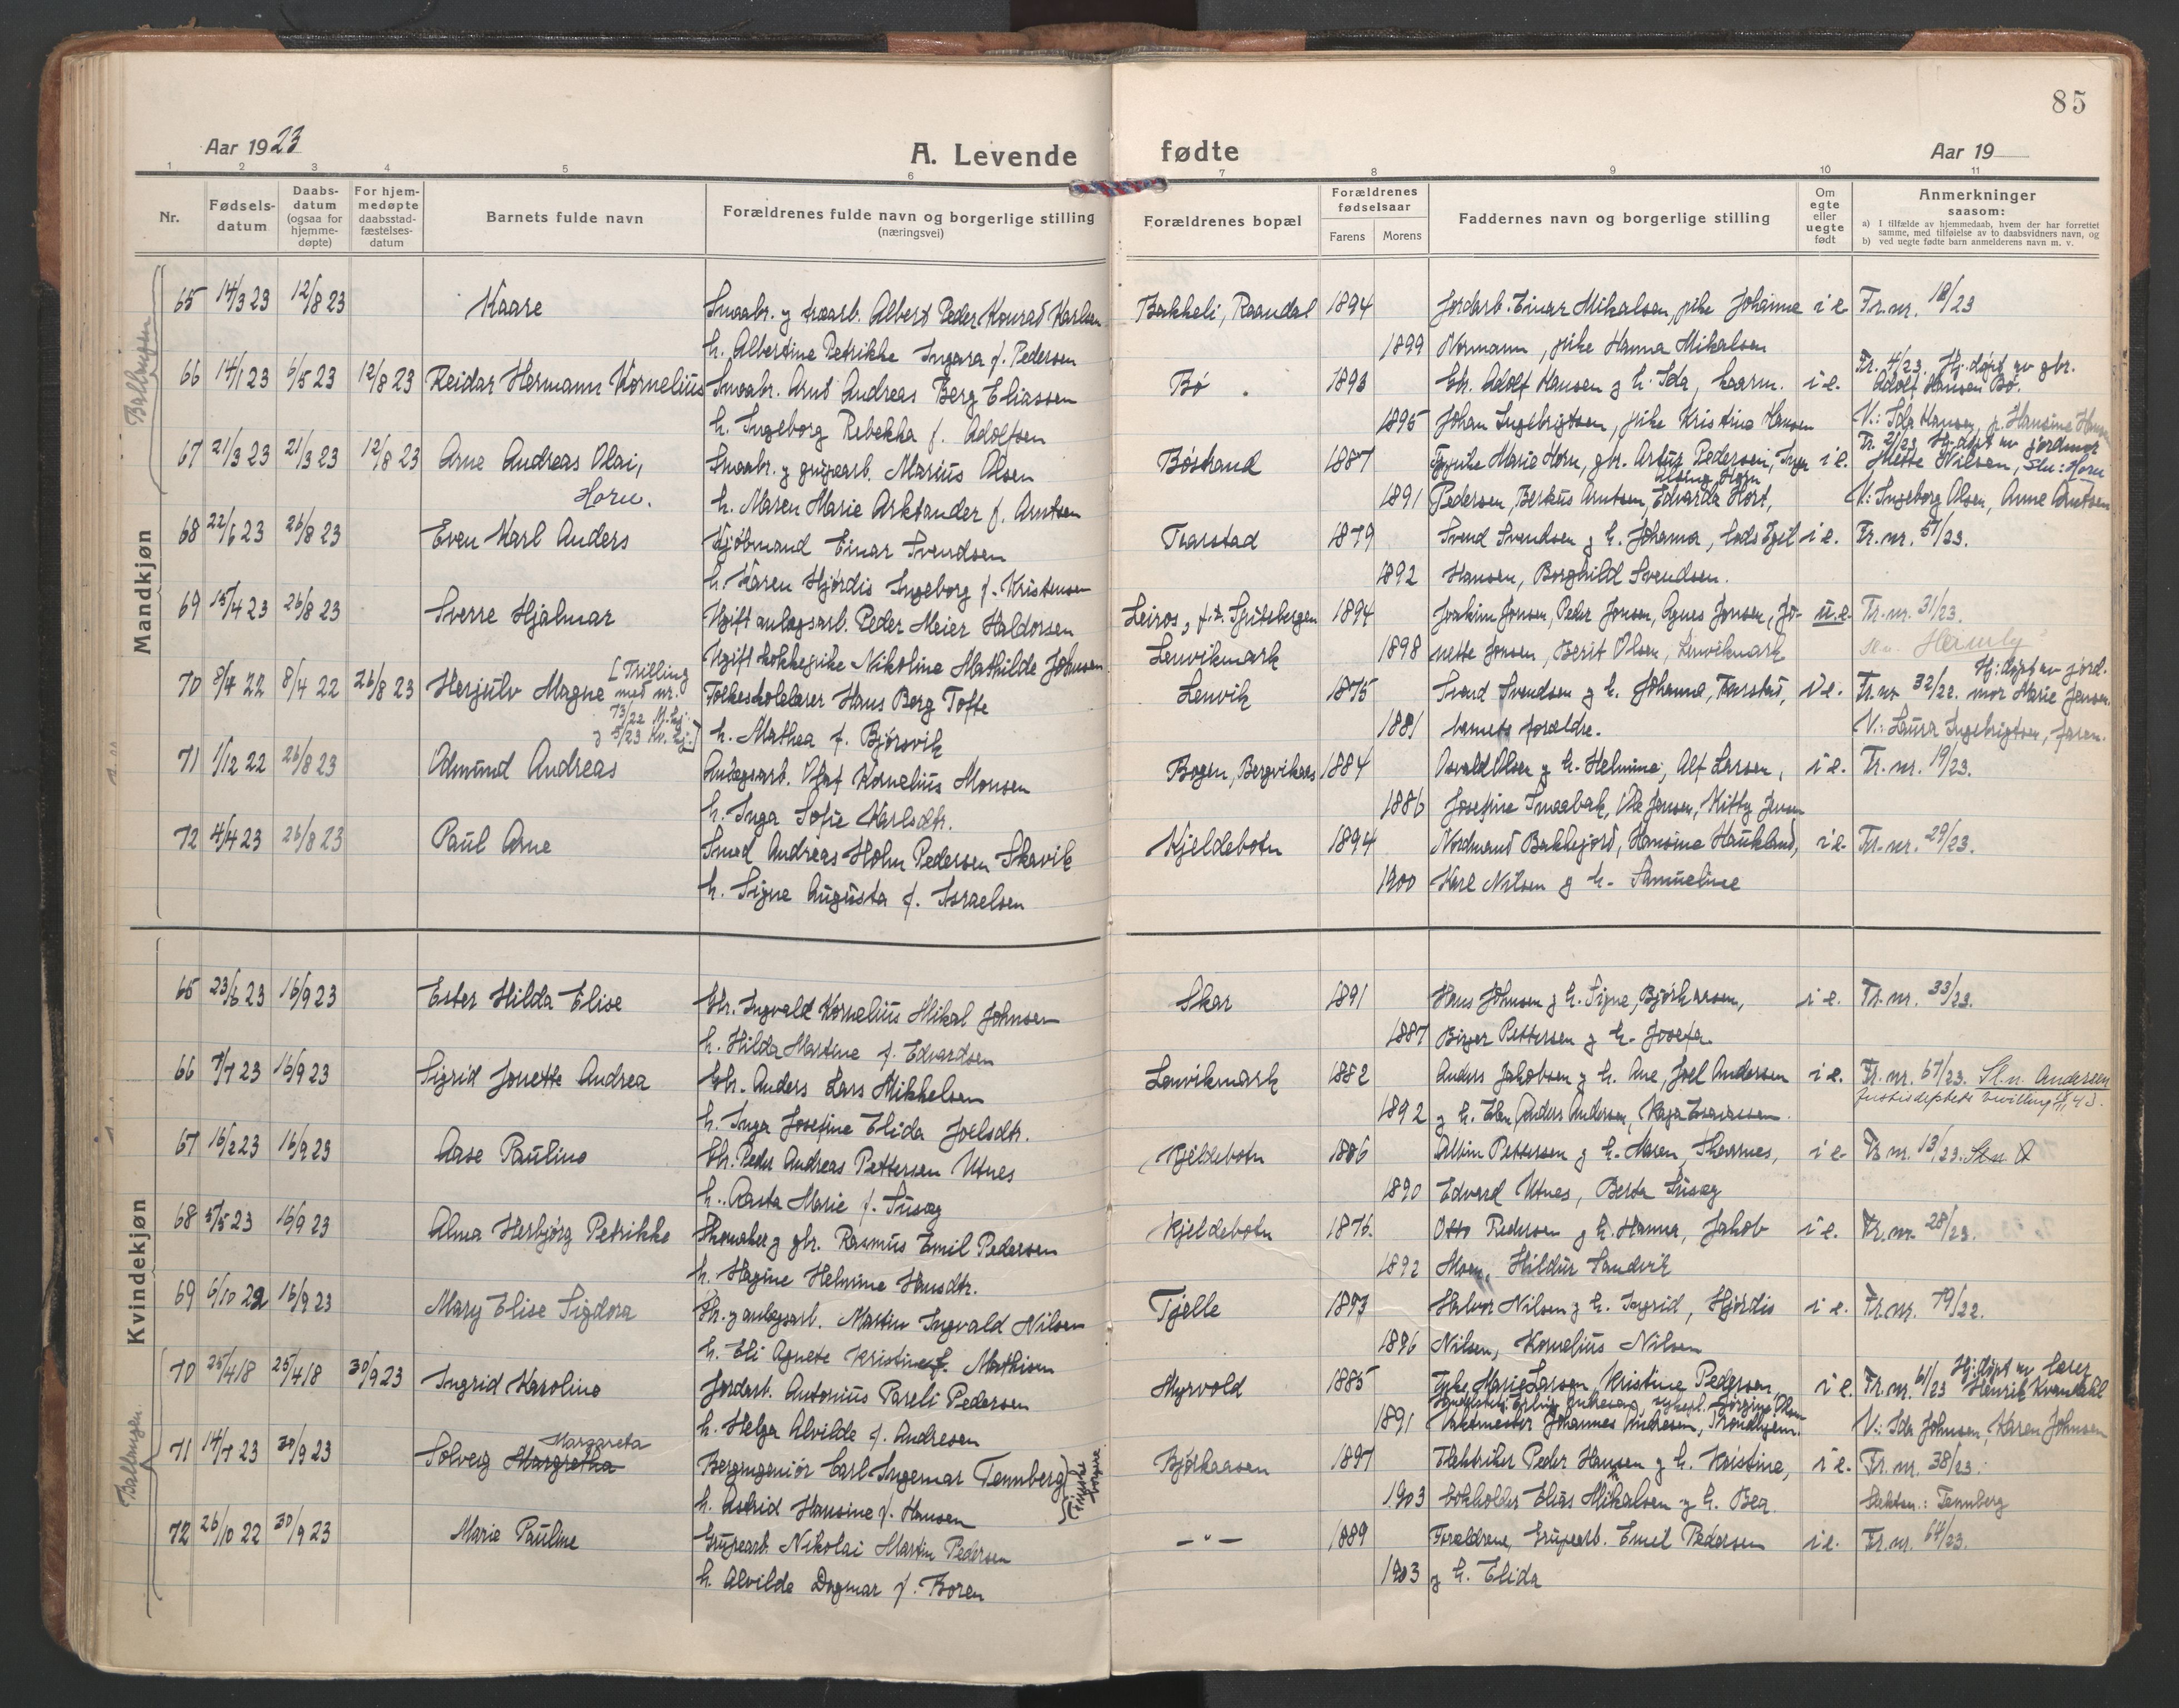 85
Aar 1923
A. Levende fødte
Aar 19
1 2 3 4 5 6 7 8 9 10 11
Nr.
Fødsels-
datum
Daabs-
datum
(ogsaa for
hjemme-
døpte)
For hjem-
medøpte
daabsstad-
fæstelses-
datum
Barnets fulde navn
Forældrenes fulde navn og borgerlige stilling
(næringsvei)
Forældrenes bopæl
Forældrenes
fødselsaar
Farens Morens
Faddernes navn og borgerlige stilling
Om
egte
eller
uegte
født
Anmerkninger
saasom:
a) I tilfælde av hjemmedaab, hvem der har forrettet
samme, med tilføielse av to daabsvidners navn, og
b) ved uegte fødte barn anmelderens navn m. v.
Mandkjøn
Ballangen
65 14/3 23 12/8 23 Kaare Smaabr. g Albert Peder Konrad Karlsen Bakkeli, Raandal 1894 Jordarb. Einar Mikalsen, pike Johanne i e Fr. nr. 18/23
h. Albertine Petrikke Ingara f. Pedersen 1899 Normann, pike Hanna Mikalsen
66 14/1 23 6/5 23 12/8 23 Reidar Hermann Kornelius Smaabr. Arnt Andreas Berg Eliassen Bø 1893 Gbr. Adolf Hansen g h. Ida, i e. Fr. 4/23. Hj. døpt av gbr.
Adolf Hansen Bø.
h. Ingeborg Rebekka f. Adolfsen 1895 Johan Ingebrigtsen, pike Kristine Hansen V.: Ida Hansen, p. Hansine
67 21/3 23 21/3 23 12/8 23 Arne Andreas Olai, Smaabr. g grubearb. Marius Olsen Bøstrand 1887 pike Marie Horn, gbr. Artur Pedersen, Inga i e. Fr. 2/23 Hj. døpt av jordmor
Mette Nilsen, Sln: Horn
Horn. h. Maren Marie Arktander f. Arntsen 1891 Pedersen, Berkus Arntsen, Edvarda Hort, V: Ingeborg Olsen, Anne Arntsen
68 22/6 23 26/8 23 Even Karl Anders Kjøbmand Einar Svendsen Taarstad 1879 Svend Svendsen g h. Johanna, Egil i e. Fr. nr. 51/23.
h. Karen Hjørdis Ingeborg f. Kristensen 1892 Hansen, Borghild Svendsen.
69 15/4 23 26/8 23 Sverre Hjalmar Ugift anlægsarb. Peder Meier Haldorsen Leiros, f. t. Spitsbergen 1894 Joakim Jonsen, Peder Jonsen, Agnes Jonsen, Jo- u.e. Fr. nr. 31/23.
Ugift kokkepike Nikoline Mathilde Johnsen Lenvikmark 1898 nette Jonsen, Berit Olsen, Lenvikmark
70 8/4 22 8/4 22 26/8 23 Herjulv Magne [Trilling
med nr.
73/22 M.kj.
g 5/23 Kv. kj.] Folkeskolelærer Hans Berg Tofte Lenvik 1875 Svend Svendsen g h. Johanna, Taarstad, i e. Fr. nr 32/22. Hj: døpt av jord-
mor Marie Jensen
h. Mathea f. Bjørsvik 1881 barnets forældre. V.: Laura Ingebrigtsen, faren.
71 1/12 22 26/8 23 Odmund Andreas Anlægsarb. Olaf Kornelius Monsen Bogen, Bergvikens 1884 Osvald Olsen g h. Helmine, Alf Larsen, i e. Fr. nr. 19/23.
h. Inga Sofie Karlsdtr. 1886 Josefine Smaabak, Jensen, Kitty Jensen
72 4/4 23 26/8 23 Paul Arne Smed Andreas Holm Pedersen Skavik Kjeldebotn 1894 Nordmand Bakkejord, Hansine Haukland, i e. Fr. nr. 29/23.
h. Signe Augusta f. Israelsen 1900 Karl Nilsen g h. Samueline
Kvindekjøn
65 23/6 23 16/9 23 Ester Hilda Elise Gbr. Ingvald Kornelius Mikal Johnsen Skar 1891 Hans Johnsen g h. Signe, Bjørkaasen, i e. Fr. nr. 33/23.
h. Hilda Martine f. Edvardsen 1887 Birger Pettersen g h. Josefa.
66 7/7 23 16/9 23 Sigrid Jonette Andrea Gbr. Anders Lars Mikkelsen Lenvikmark 1882 Anders Jakobsen g h. Ane, Joel Andersen i e. Fr. nr. 67/23. Sl.n. Andersen
h. Inga Josefine Elida Joelsdtr. 1892 g h. Elen, Anders Andersen, Kaja Esaiassen.
67 16/2 23 16/9 23 Aase Pauline Gbr. Peder Andreas Pettersen Utnes Kjeldebotn 1886 Albin Pettersen g h. Maren, Skarnes, i e. Fr nr. 13/23.
h. Aasta Marie f. Susæg 1890 Edvard Utnes, Berta Susæg
68 5/5 23 16/9 23 Alma Herbjørg Petrikke Skomaker g gbr. Rasmus Emil Pedersen Kjeldebotn 1876. Otto Pedersen g h. Hanna, Jakob i e. Fr. nr. 28/23.
h. Hagine Helmine Hansdtr. 1892 Moen, Hildur Sandvik
69 6/10 22 16/9 23 Mary Elise Sigdora Gbr. g anlægsarb. Martin Ingvald Nilsen Tjelle 1893 Halvor Nilsen g h. Ingrid, Hjørdis i e. Fr. nr. 79/22.
h. Eli Agnete Kristine f. Mathisen 1896 Nilsen, Kornelius Nilsen
Ballangen.
70 25/4 18 25/4 18 30/9 23 Ingrid Karoline Jordarb. Antonius Pareli Pedersen Myrvold 1885 Marie Larsen, Kristine Pedersen i e. Fr. nr. 61/23 Hj: døpt av lærer
Henrik Kvandahl
h. Helga Alvilde f. Andresen 1891 Vaktmester Johannes Andresen, Trondhjem. V.: Ida Johnsen, Karen Johnsen
71 14/7 23 30/9 23 Solveig Margretha Margareta Bergingeniør Carl Ingemar Tennberg Bjørkaasen 1897 Elektriker Peder Hansen g h. Kristine, i e. Fr. nr. 38/23.
h. Astrid Hansine f. Hansen (Finske borgere) 1903 bokholder Elias Mikalsen g h. Bea. Slektsn.: Tennberg
72 26/10 22 30/9 23 Marie Pauline Grubearb. Nikolai Martin Pedersen — " — 1889 Forældrene, Grubearb. Emil Pedersen i e. Fr. nr. 64/23.
h. Alvilde Dagmar f. Boren 1903 g h. Elida